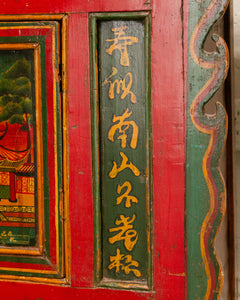 寿似南山不老松